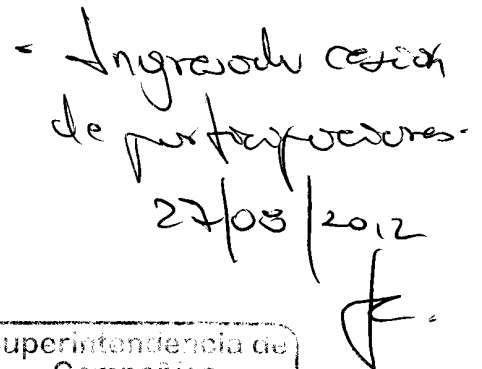 - Ingresado cesión
de participaciones.
27/08/2012
Superintendencia de